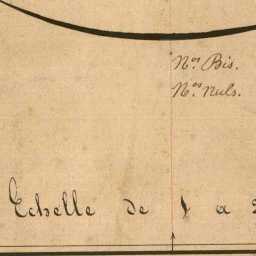 Nos. Bis.
Nos. nuls.
Echelle de 1 a 2